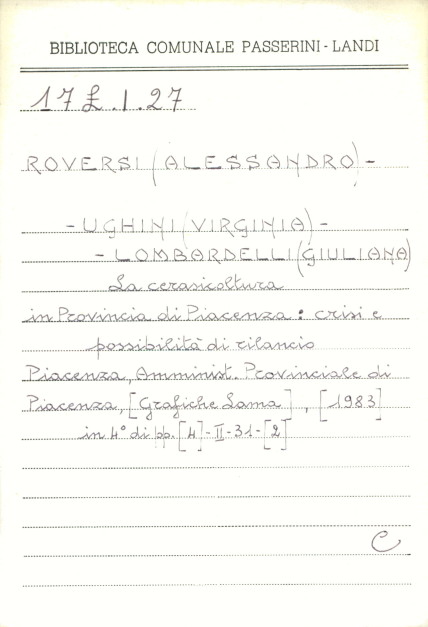 BIBLIOTECA COMUNALE PASSERINI - LANDI
17 £.1.27
ROVERSI (ALESSANDRO) -
- UGHINI (VIRGINIA) -
- LOMBARDELLI (GIULIANA)
La cerasicoltura
in Provincia di Piacenza : crisi e
possibilità di rilancio
Piacenza, Amminist. Provinciale di
Piacenza, [Grafiche Lama], [1983]
in 4° di pp. [4]-II-31-[2]
C